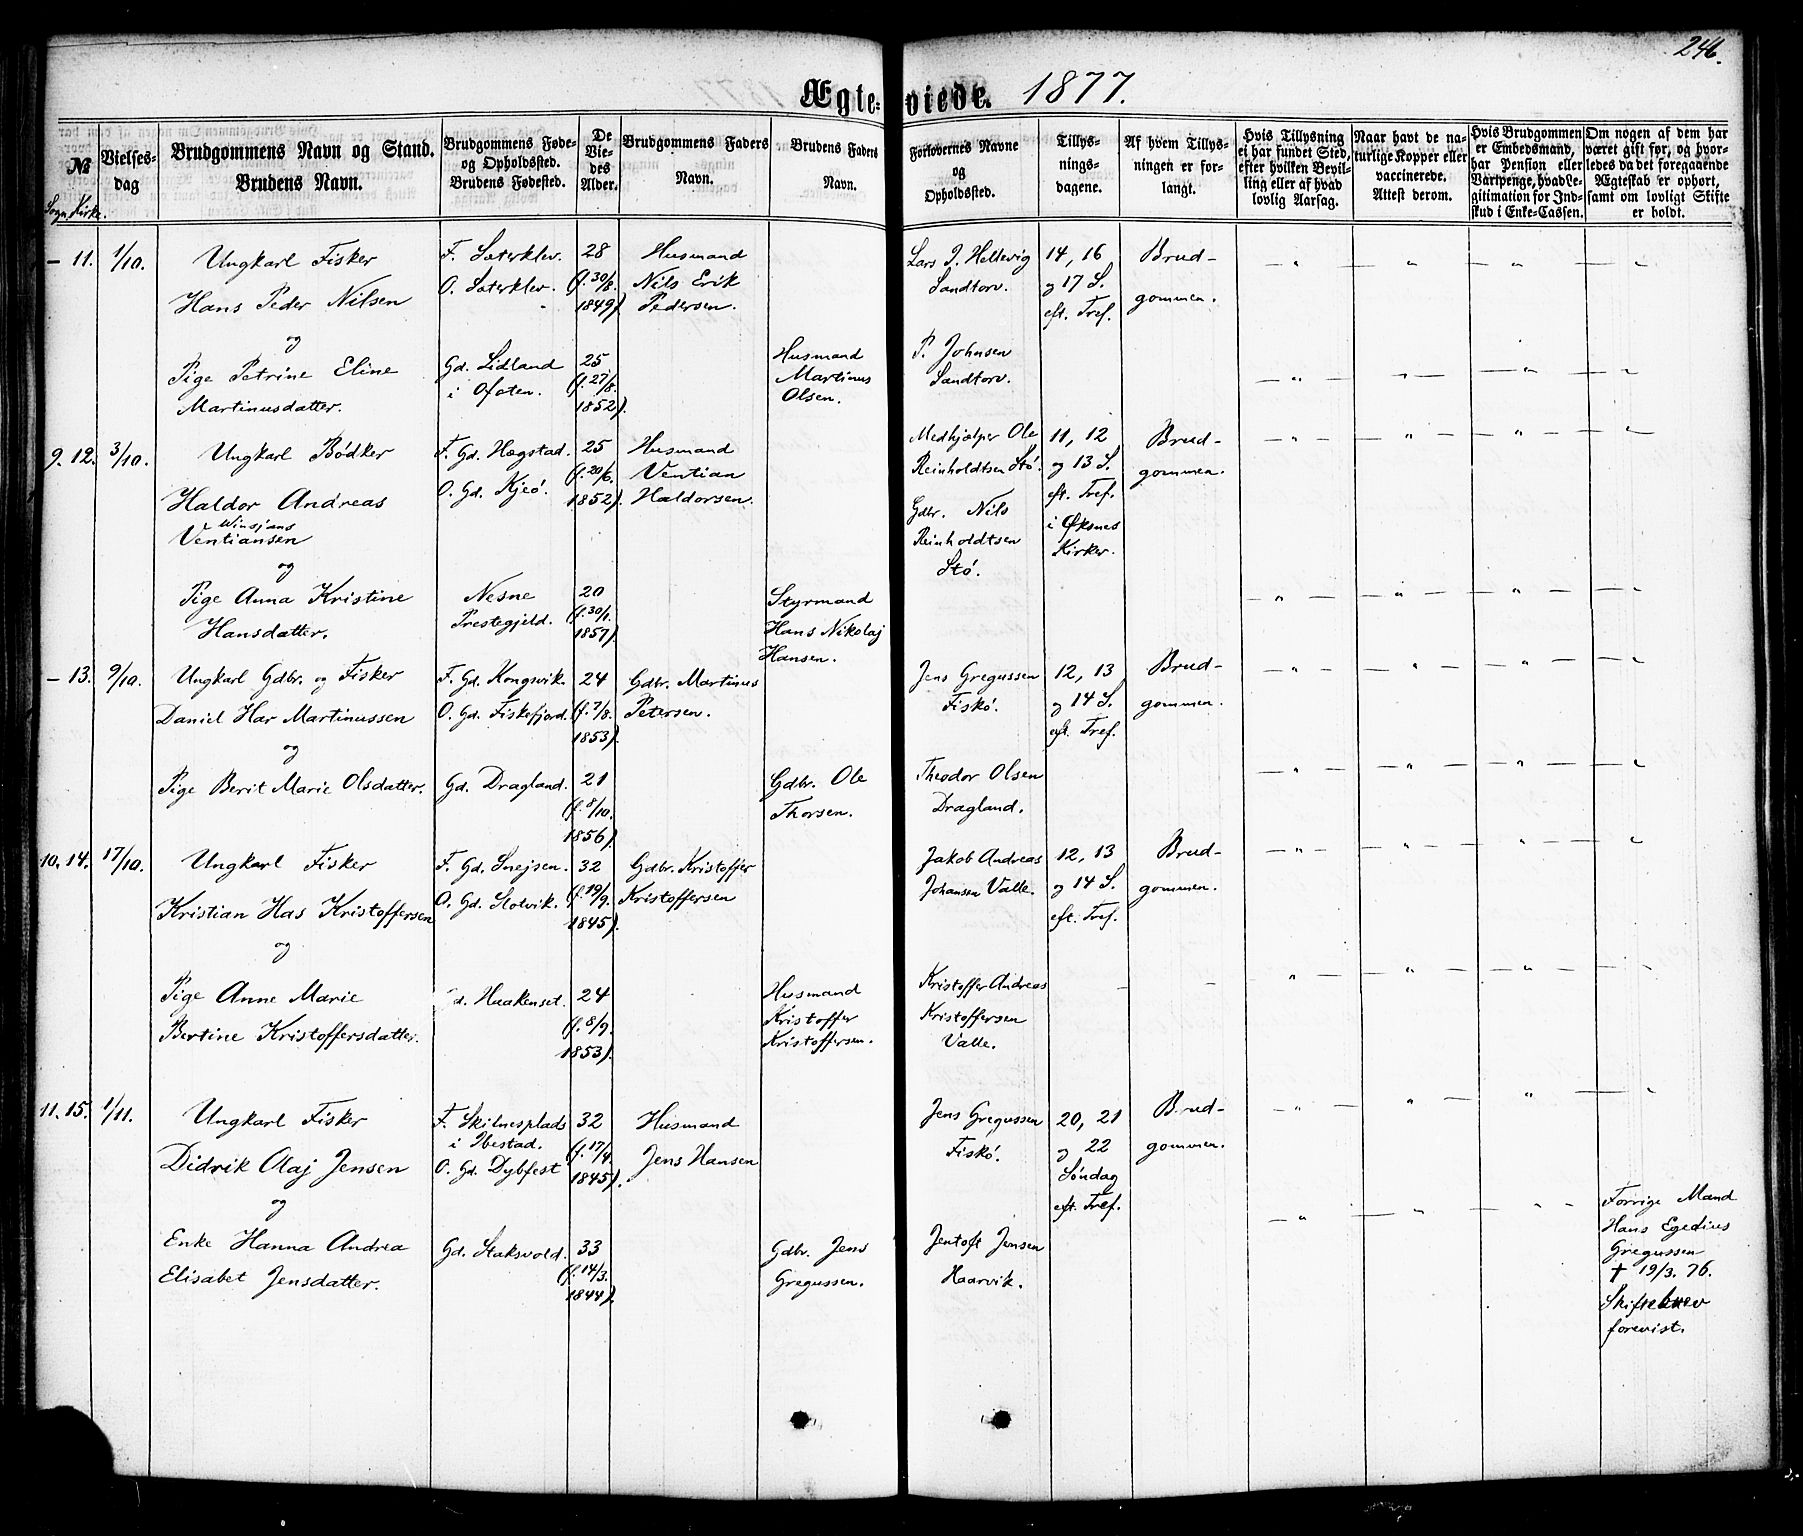 246.
Ægte-viede. 1877.
№
Sogn. Kirke.
Vielses-
dag
Brudgommens Navn og Stand.
Brudens Navn.
Brudgommens Føde-
og Opholdssted.
Brudens Fødested.
De
Vie-
des
Alder.
Brudgommens Faders
Navn.
Brudens Faders
Navn.
Forlovernes Navne
og
Opholdssted.
Tillys-
nings-
dagene.
Af hvem Tillys-
ningen er for-
langt.
Hvis Tillysning
ei har fundet Sted,
efter hvilken Bevil-
ling eller af hvad
lovlig Aarsag.
Naar havt de na-
turlige Kopper eller
vaccinerede.
Attest derom.
Hvis Brudgommen
er Embedsmand,
har Pension eller
Vartpenge, hvad Le-
gitimation for Ind-
skud i Enke-Cassen.
Om nogen af dem har
været gift før, og hvor-
ledes da det foregaaende
Ægteskab er ophørt,
samt om lovligt Skifte
er holdt.
– 11. 1/10.
Ungkarl Fisker
Hans Peder Nilsen
og
Pige Petrine Eline
Martinusdatter.
F. Sæterklev.
O. Sæterklev.
Gd. Lidland
i Ofoten.
28
(f. 30/8.
1849).
25
(f. 27/8.
1852).
Husmand
Nils Erik
Pedersen.
Husmand
Martinus
Olsen.
Lars J. Hellevig
Sandtorv.
P. Johnsen
Sandtorv.
14, 16
og 17 S.
eft. Tref.
Brud-
gommen.
9. 12. 3/10.
Ungkarl Bødker
Haldor Andreas
Winsjans
Ventiansen
og
Pige Anna Kristine
Hansdatter.
F. Gd. Hægstad.
O. Gd. Kjeø.
Nesne
Prestegjeld.
25
(f. 20/6.
1852).
20
(f. 30/1.
1857).
Husmand
Ventian
Haldorsen.
Styrmand
Hans Nikolaj
Hansen.
Medhjælper Ole
Reinholdtsen Stø.
Gdbr. Nils
Reinholdtsen
Stø.
11, 12
og 13 S.
eft. Tref.
i Øksnes
Kirker.
Brud-
gommen.
– 13. 9/10.
Ungkarl Gdbr. og Fisker
Daniel Har Martinussen
og
Pige Berit Marie Olsdatter.
F. Gd. Kongsvik.
O. Gd. Fiskefjord.
Gd. Dragland.
24
(f. 7/8.
1853).
21
(f. 8/10.
1856).
Gdbr. Martinus
Petersen.
Gdbr. Ole
Thorsen.
Jens Gregussen
Fiskø.
Theodor Olsen
Dragland.
12, 13
og 14 S.
eft. Tref.
Brud-
gommen.
10. 14. 17/10.
Ungkarl Fisker
Kristian Has Kristoffersen
og
Pige Anne Marie
Bertine Kristoffersdatter.
F. Gd. Snejsen.
O. Gd. Slotvik.
Gd. Haakenset.
32
(f. 19/9.
1845).
24
(f. 8/9.
1853).
Gdbr. Kristoffer
Kristoffersen
Husmand
Kristoffer
Kristoffersen.
Jakob Andreas
Johansen Valle.
Kristoffer Andreas
Kristoffersen
Valle.
12, 13
og 14 S.
eft. Tref.
Brud-
gommen.
11. 15. 1/11.
Ungkarl Fisker
Didrik Olaj Jensen
og
Enke Hanna Andrea
Elisabet Jensdatter.
F. Skilnesplads
i Ibestad.
O. Gd. Dybfest
Gd. Staksvold.
32
(f. 17/4.
1845).
33
(f. 14/3.
1844).
Husmand
Jens Hansen
Gdbr. Jens
Gregussen.
Jens Gregussen
Fiskø.
Jentoft Jensen
Haarvik.
20, 21
og 22
Søndag
eft. Tref.
Brud-
gommen.
Forrige Mand
Hans Egedius
Gregussen
† 19/3. 76.
Skiftebrev
forevist.